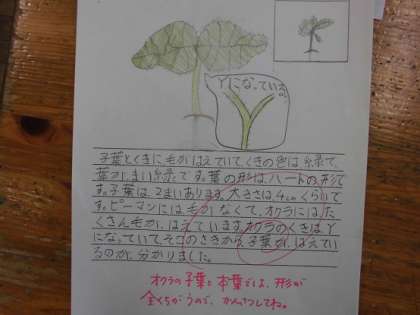 Yになっている。
子葉とくきに毛がはえていて、くきの色は緑で、
葉が、まい緑です。葉の形は、ハートの形で
す。子葉は、2まいあります。大きさは、4cmくらいで
す。ピーマンには毛がなくて、オクラには、た
くさん毛が、はえています。オクラのくきは、Y
になっていてそこのさきから、子葉が、はえてい
るのが、分かりました。
オクラの子葉と本葉では、形が
全くちがうので、かんさつしてね。